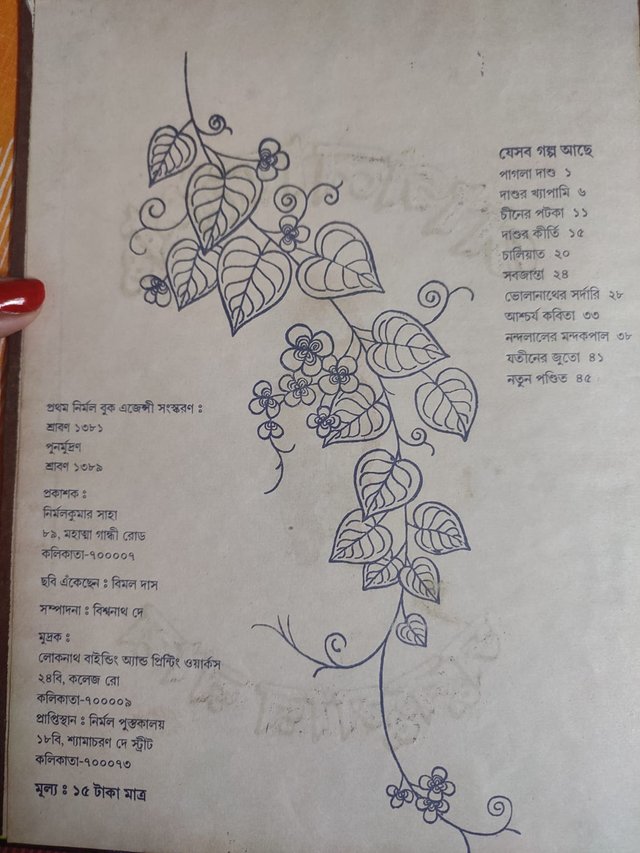 যেসব গল্প আছে
পাগলা দাশু ১
দাশুর খ্যাপামি ৬
চীনের পটকা ১১
দাশুর কীর্তি ১৫
চালিয়াত ২০
সবজান্তা ২৪
ভোলানাথের সর্দারি ২৮
আশ্চর্য কবিতা ৩৩
নন্দলালের মন্দকপাল ৩৮
যতীনের জুতো ৪১
নতুন পণ্ডিত ৪৫
প্রথম নির্মল বুক এজেন্সী সংস্করণ :
শ্রাবণ ১৩৮১
পুনর্মুদ্রণ
শ্রাবণ ১৩৮৯
প্রকাশক :
নির্মলকুমার সাহা
৮৯, মহাত্মা গান্ধী রোড
কলিকাতা-৭০০০০৭
ছবি এঁকেছেন : বিমল দাস
সম্পাদনা : বিশ্বনাথ দে
মুদ্রক :
লোকনাথ বাইন্ডিং অ্যান্ড প্রিন্টিং ওয়ার্কস
২৪বি, কলেজ রো
কলিকাতা-৭০০০০৯
প্রাপ্তিস্থান : নির্মল পুস্তকালয়
১৮বি, শ্যামাচরণ দে স্ট্রীট
কলিকাতা-৭০০০৭৩
মূল্য : ১৫ টাকা মাত্র